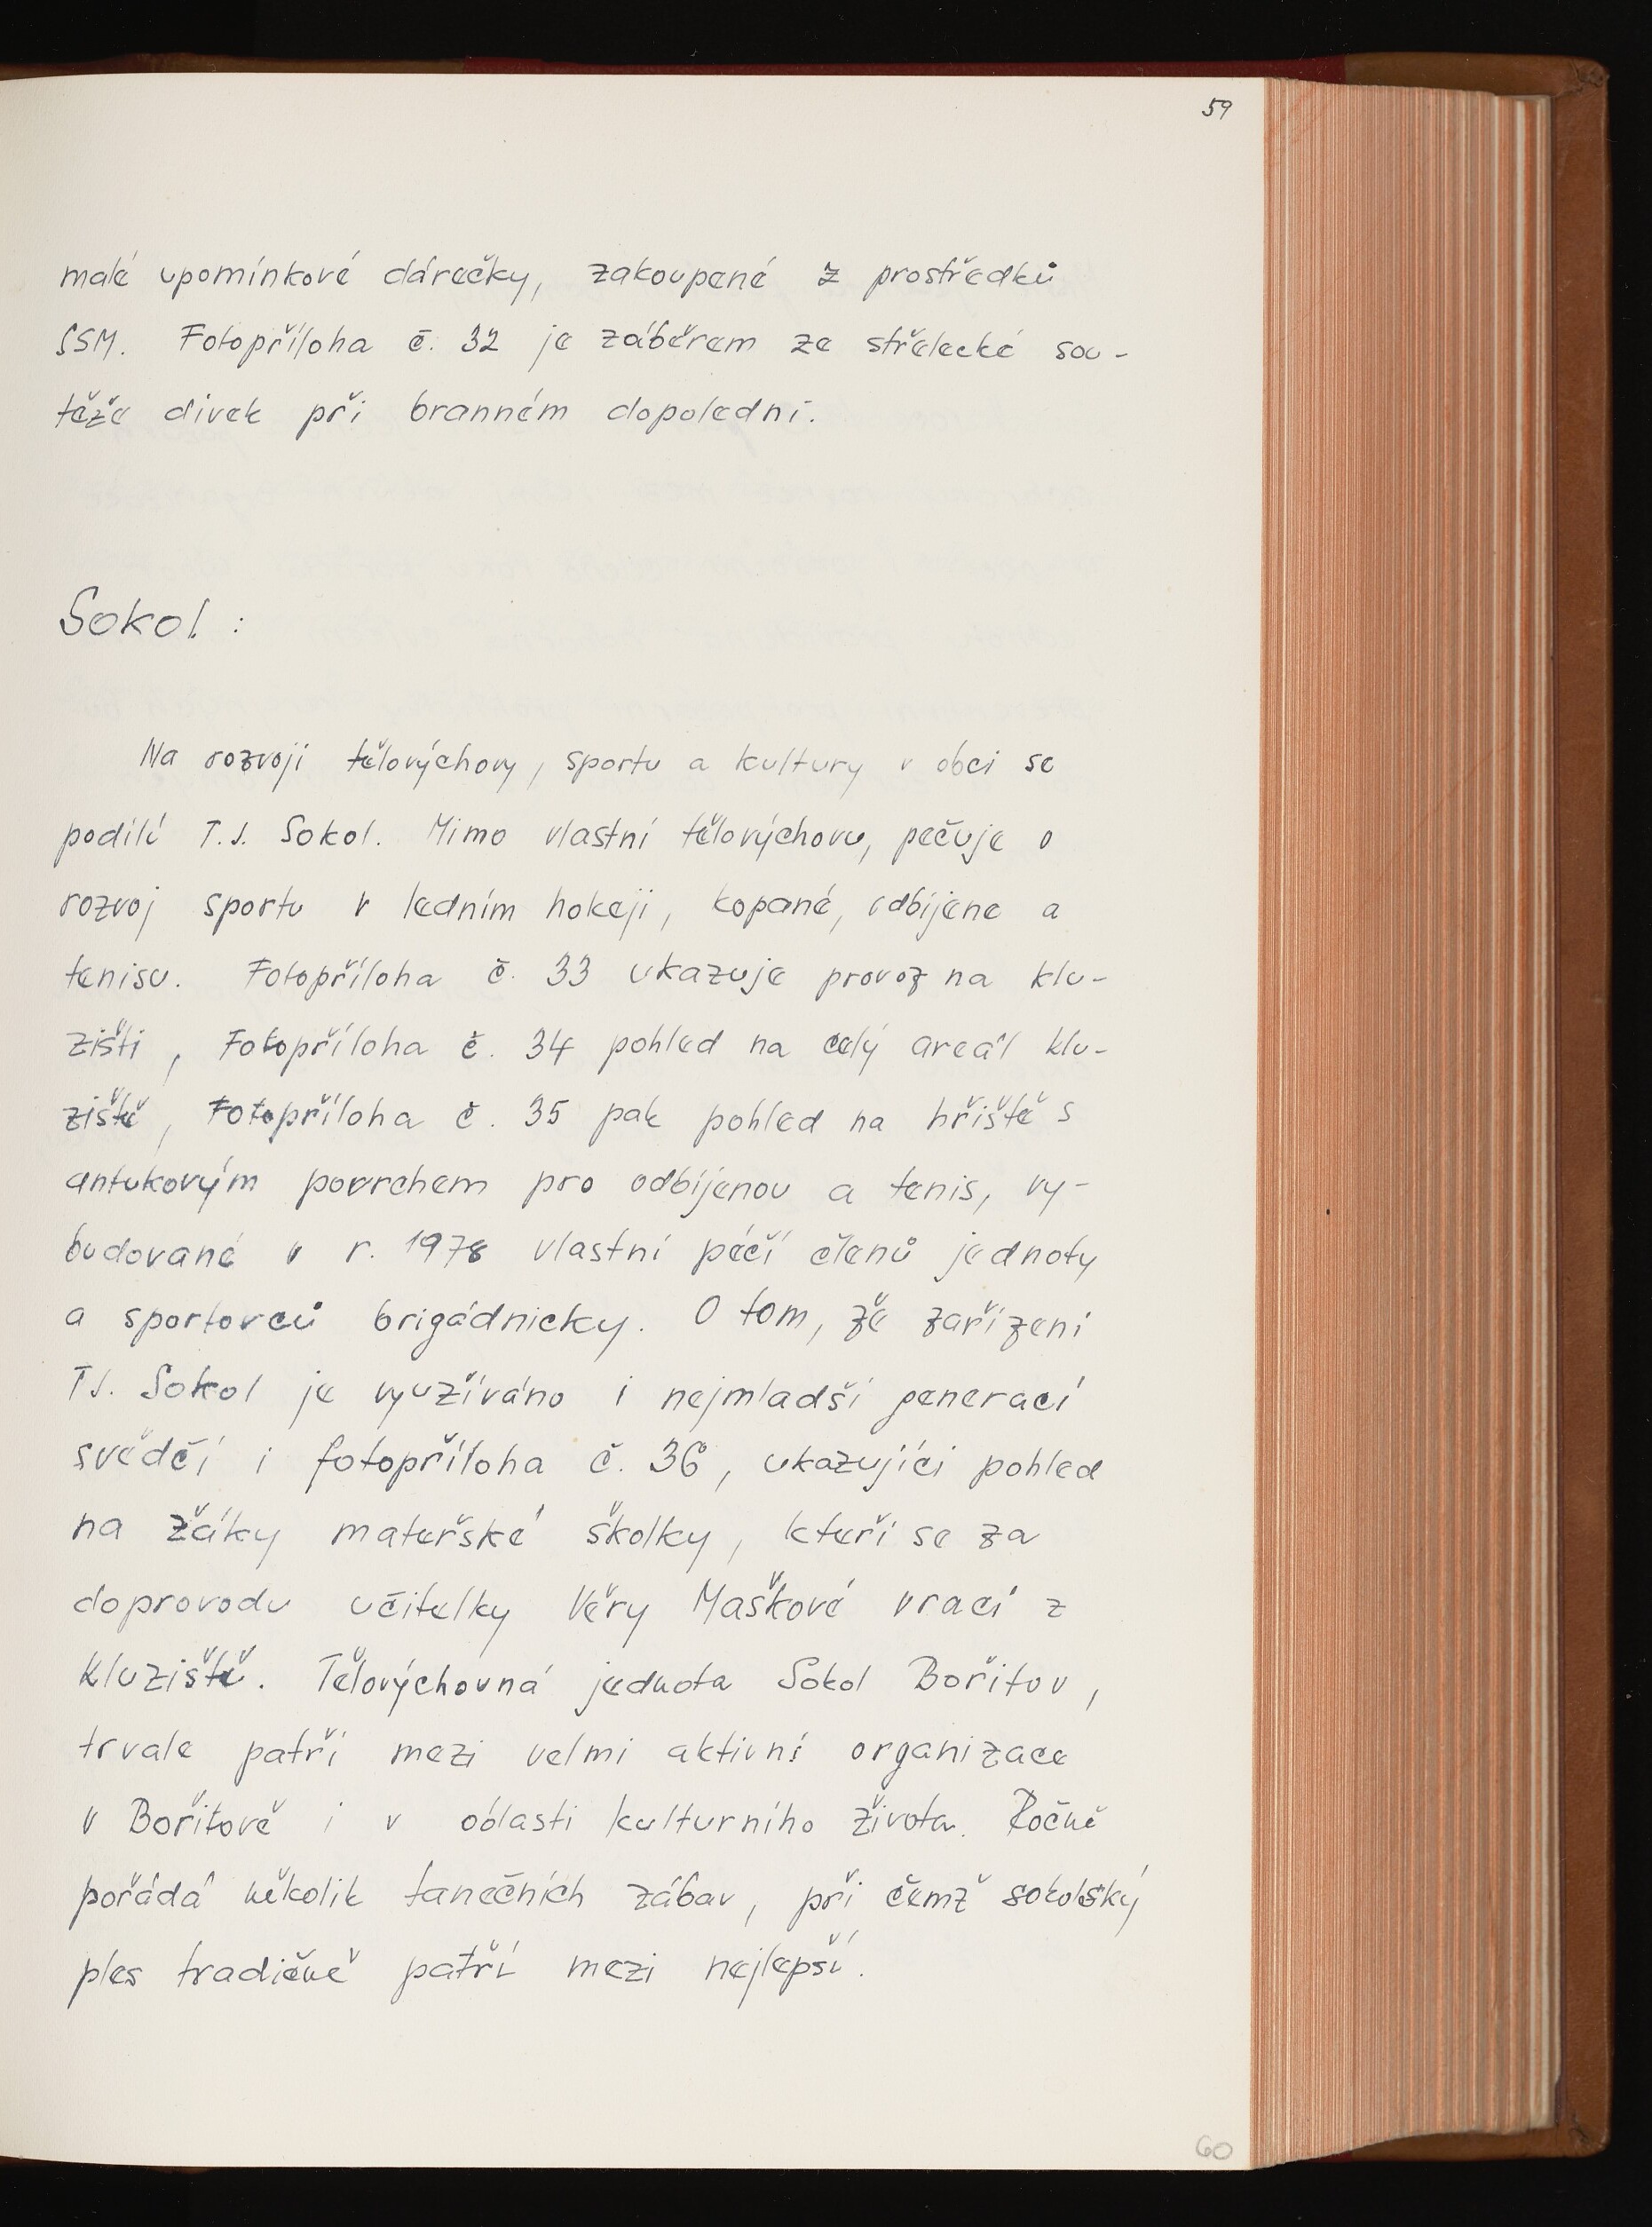 59
malé upomínkové dárečky, zakoupené z prostředků
SSM. Fotopříloha č. 32 je záběrem ze střelecké sou-
těže dívek při branném dopoledni.
Sokol :
Na rozvoji tělovýchovy, sportu a kultury v obci se
podílí T.J. Sokol. Mimo vlastní tělovýchovu, pečuje o
rozvoj sportu v ledním hokeji, kopané, odbíjene a
tenisu. Fotopříloha č. 33 ukazuje provoz na klu-
zišti, Fotopříloha č. 34 pohled na celý areál klu-
ziště, Fotopříloha č. 35 pak pohled na hřiště s
antukovým povrchem pro odbíjenou a tenis, vy-
budované v r. 1978 vlastní péčí členů jednoty
a sportovců brigádnicky. O tom, že zařízení
TJ. Sokol je využíváno i nejmladší generací
svědčí i fotopříloha č. 36, ukazující pohled
na žáky mateřské školky, kteří se za
doprovodu učitelky Věry Maškové vrací z
kluziště. Tělovýchovná jednota Sokol Bořitov,
trvale patří mezi velmi aktivní organizace
v Bořitově i v oblasti kulturního života. Ročně
pořádá několik tanečních zábav, při čemž sokolský
ples tradičně patří mezi nejlepší.
60